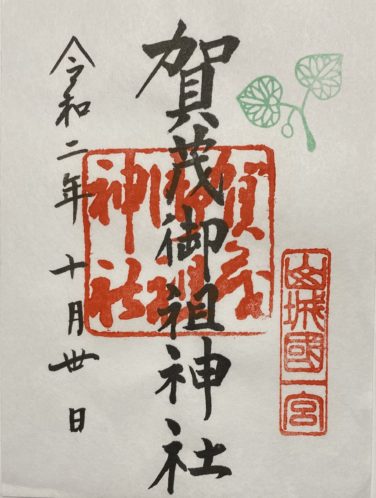 山城國一宮
賀茂御祖神社
賀茂
御祖
神社
令和二年十月丗日